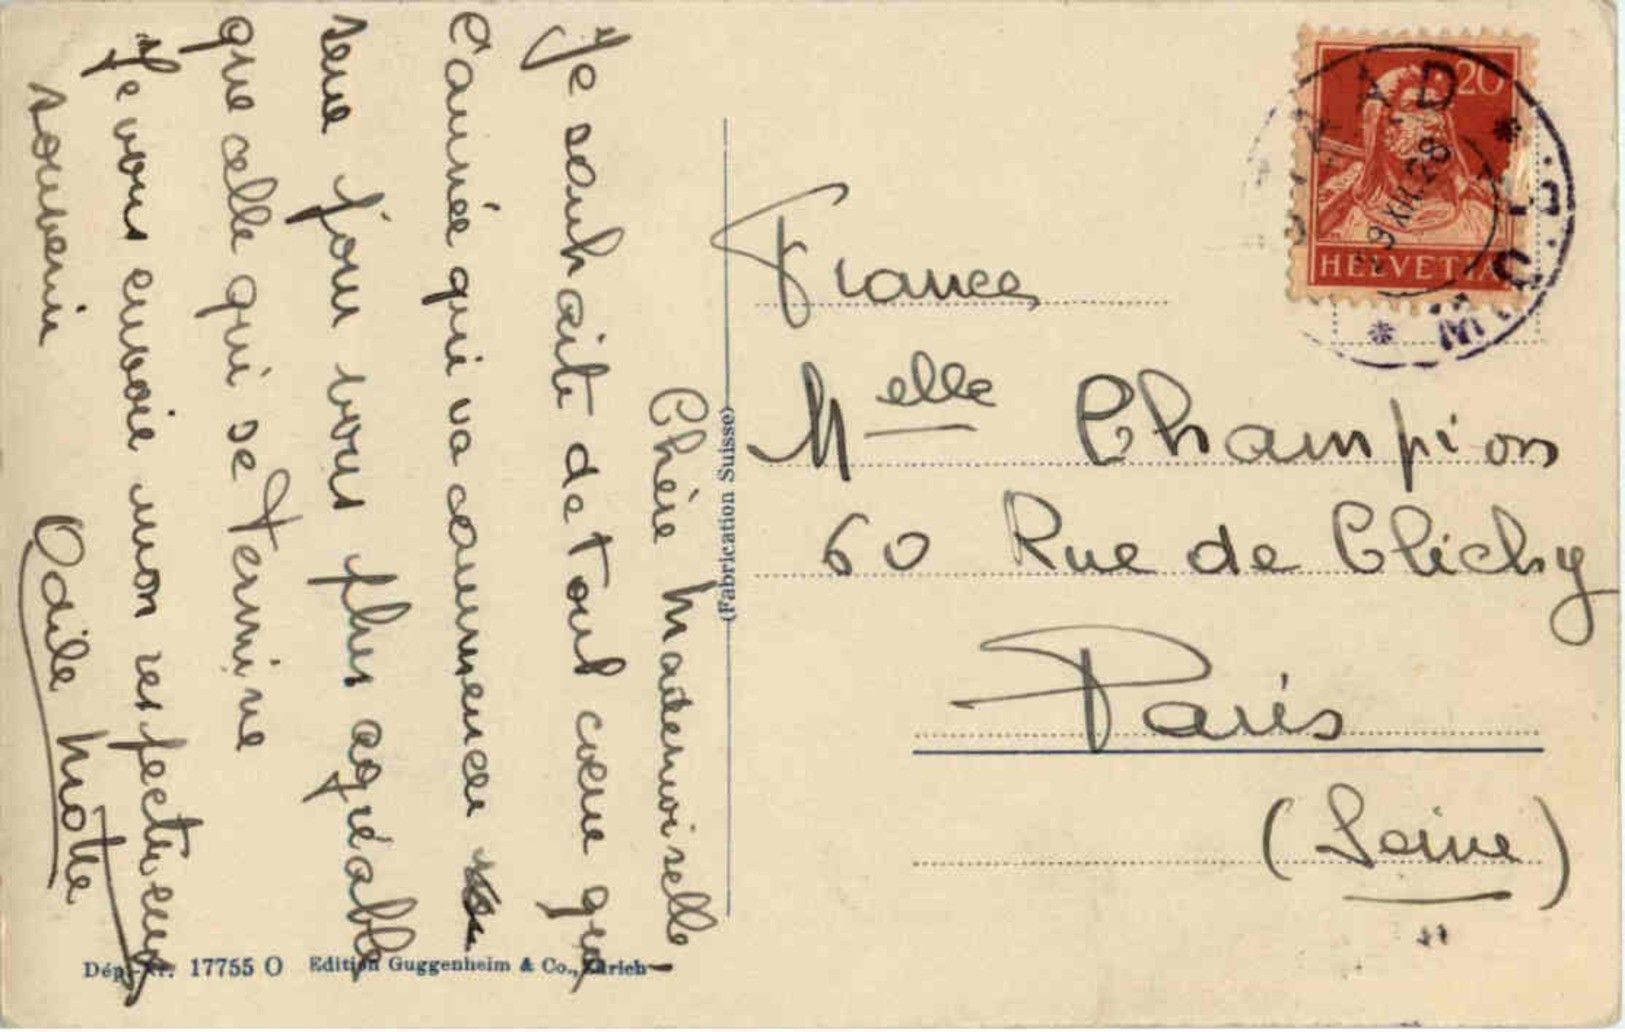 Chère Mademoiselle
Je souhaite de tout coeur que
l'année qui va commencer
sene jour vous plus agréable
que celle qui se termine
Je vous envoie mon respectueux
souvenir
Odile Motte
France
Melle Champion
60 Rue de Clichy
Paris
(Seine)
HELVETIA
20
9 XII. 28
(Fabrication Suisse)
Dép.-Nr. 17755 O Edition Guggenheim & Co., Zürich